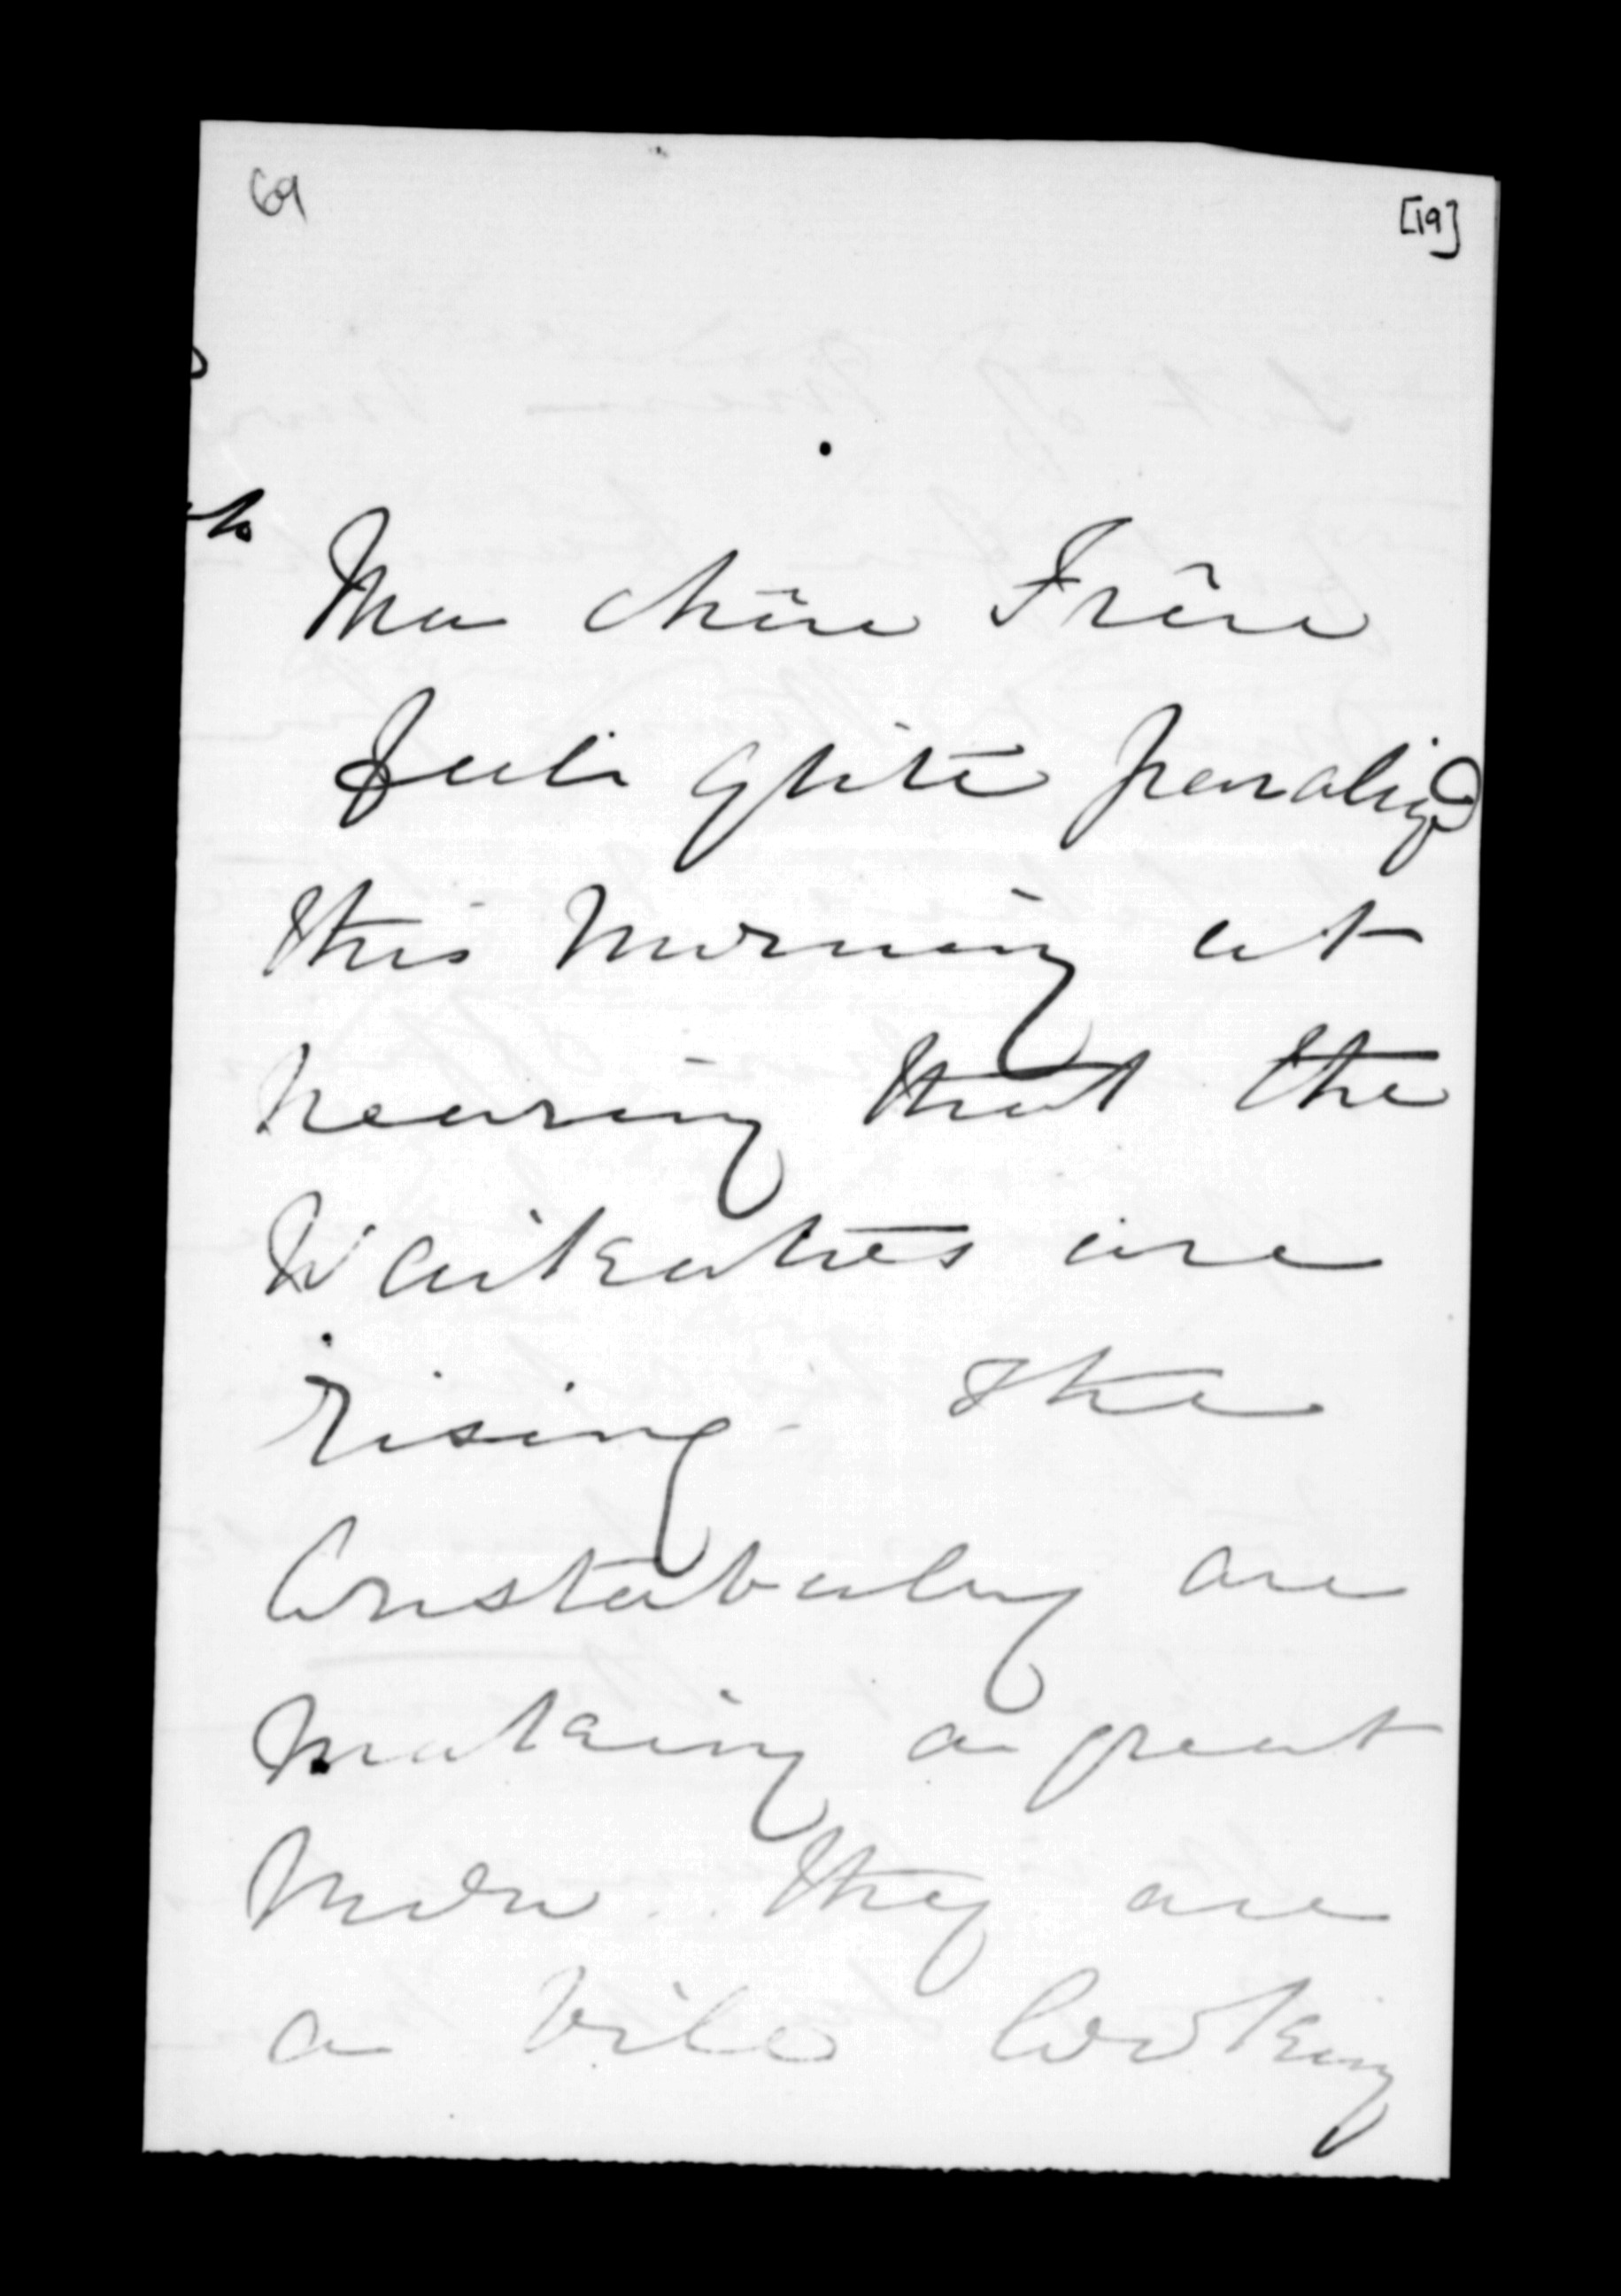 69
[19]
Ma chère Frère
feels quite paralizd
this morning at
hearing that the
Waikatoes are
rising - the
Constabulary are
making a great
they are
a vile looking